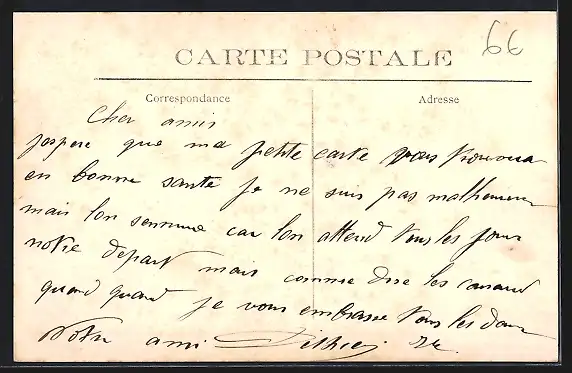 66
CARTE POSTALE
Correspondance
Adresse
Cher amis
jospere que ma petite carte vous trouvera
en bonne sante je ne suis pas malheureux
mais lon sennuie car lon attend tous les jour
notre depart mais comme dise les canard
quand quand je vous embrasse tous les deux
Votre ami